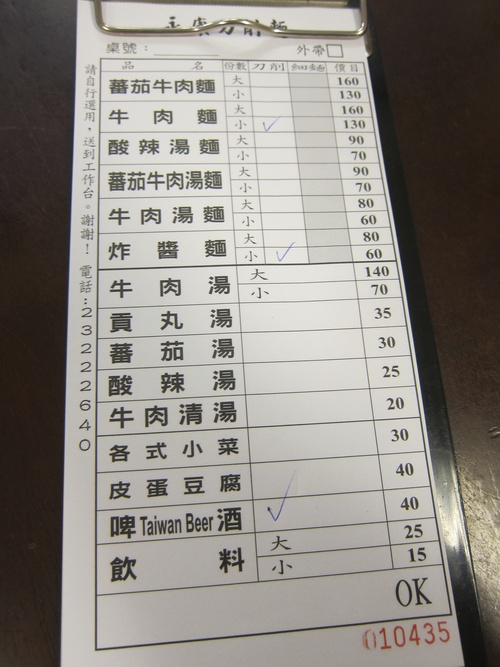 桌號： 外帶
品名 份數 刀削 細麵 價目
蕃茄牛肉麵 大 160
小 130
牛肉麵 大 160
小 130
酸辣湯麵 大 90
小 70
蕃茄牛肉湯麵 大 90
小 70
牛肉湯麵 大 80
小 60
炸醬麵 大 80
小 60
牛肉湯 大 140
小 70
貢丸湯 35
蕃茄湯 30
酸辣湯 25
牛肉清湯 20
各式小菜 30
皮蛋豆腐 40
啤Taiwan Beer酒 40
飲料 大 25
小 15
OK
010435
請自行選用，送到工作台。謝謝！ 電話：23222640